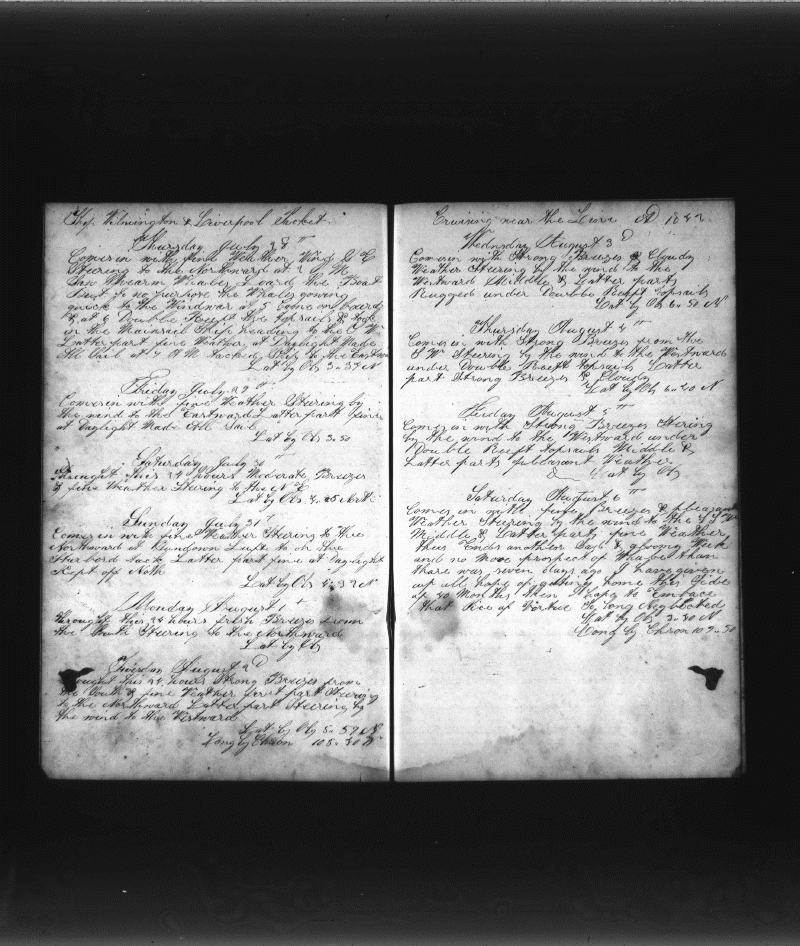 Ship Wilmington & Liverpool Packet
Thursday July 28th
Comes in with fine Weather Wind S E
Steering to the Northward at 2 P M
Saw Sperm Whales Loward the Boat
But to no purpose the Whales going
quick to the Windward at 5 Come on board
& at 6 Double Reeft the topsails & took
in the Mainsail Ship heading to the
Latter part fine Weather at Daylight Made
All Sail at 7 A M Tacked Ship to the Eastward
Lat by Obs 3..39 N
Friday July 29th
Comes in with fine Weather Steering by
the wind to the Eastward Latter part fine
at Daylight Made All Sail
Lat by Obs 3..50
Saturday July 30th
Throught this 24 hours Moderate Breezes
& fine Weather Stering to the N E
Lat by Obs 4..25 North
Sunday July 31st
Comes in with fine Weather Stering to the
Northward at Sundown Luft to on the
Starbord Tack Latter part fine at Daylight
Kept off North
Lat by Obs 4..32 N
Monday August 1st
throught this 24 hours fresh Breezes from
the South Steering to the Northward
Lat by Obs
Tuesday August 2d
Throught this 24 hours Strong Breezes from
the South & fine Weather first part Steering
to the Northward Latter part Steering by
the wind to the Westward
Lat by Obs 5..59 N
Long by Chron 105..30 W
Cruising near the Line AD 1842
Wednsday August 3d
Comes in with Strong Breezes & Cloudy
Weather Steering by the wind to the
Westward Middle & Latter parts
Rugged under Double Reeft topsails
Lat by Obs 6..50 N
Thursday August 4th
Comes in with Strong Breezes from the
S W Steering by the wind to the Westward
under Double Reeft topsails Latter
part Strong Breezes & Cloudy
Lat by Obs 6..40 N
Friday August 5th
Comes in with Strong Breezes Stering
by the wind to the Westward under
Double Reeft topsails Middle &
Latter parts pleasant Weather
Lat by Obs
Saturday August 6th
Comes in with fine Breezes & pleasant
Weather Steering by the wind to the
Middle & Latter parts fine Weather
thus Ends another Day & a long Week
and no More prospect of Whales than
there was seven days ago I have given
up all hope of getting home this Side
of 40 Months then I hope to Embrace
that Rice of Virtue So long Neglected
Lat by Obs 3..30 N
Long by Chron 109..30